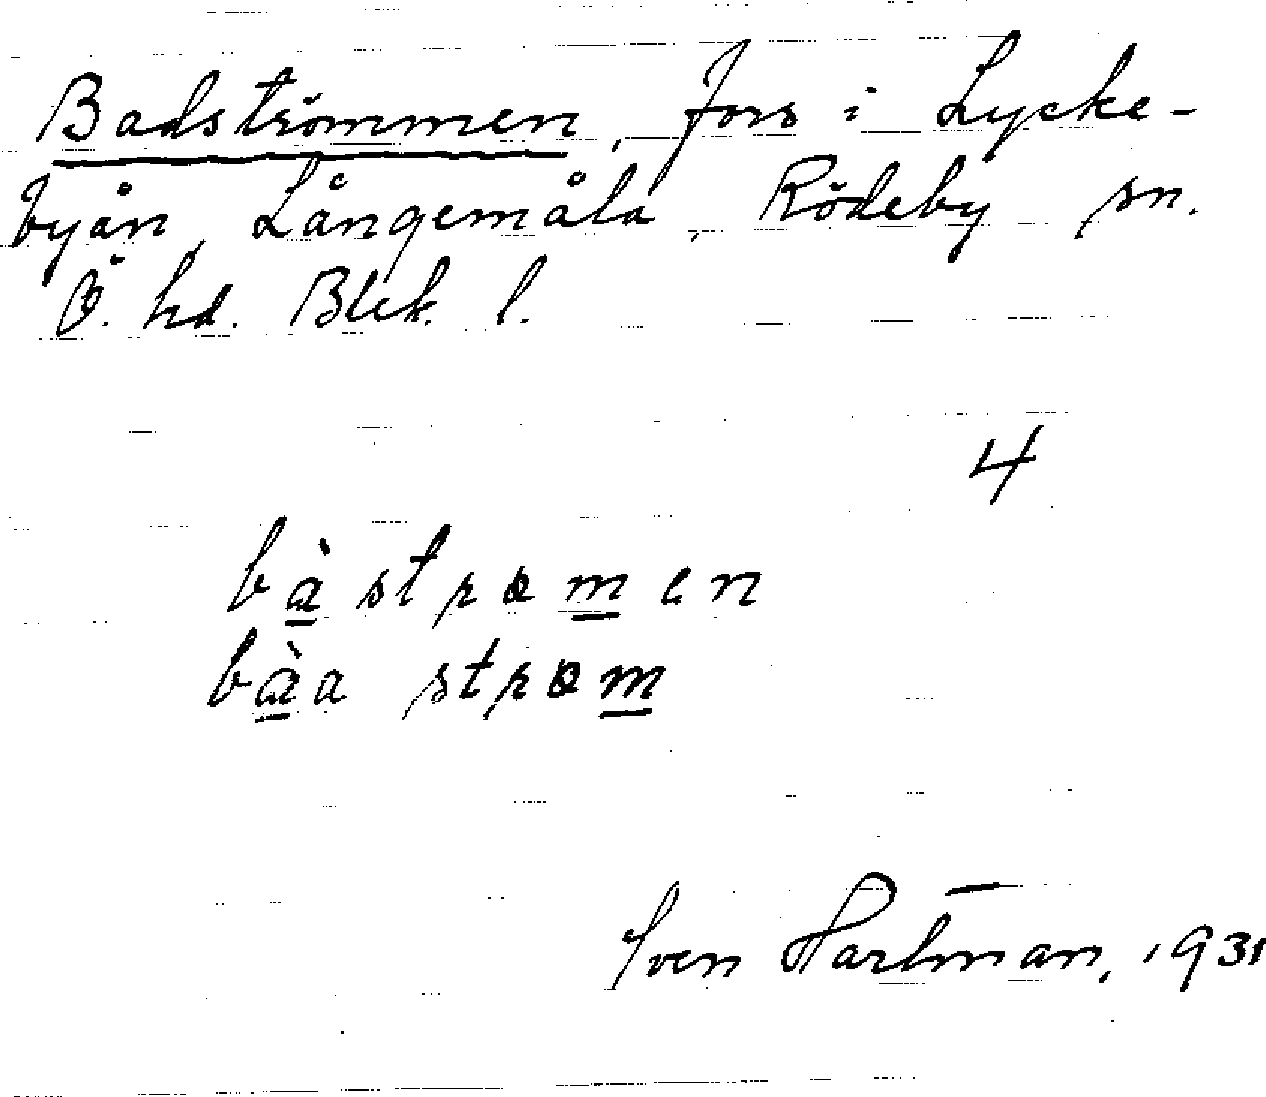 Badströmmen, fors i Lycke-
byån, Långemåla, Rödeby sn.
Ö. hd. Blek. l.
4
bàstrømen
bàa strøm
Sven Hartman, 1931